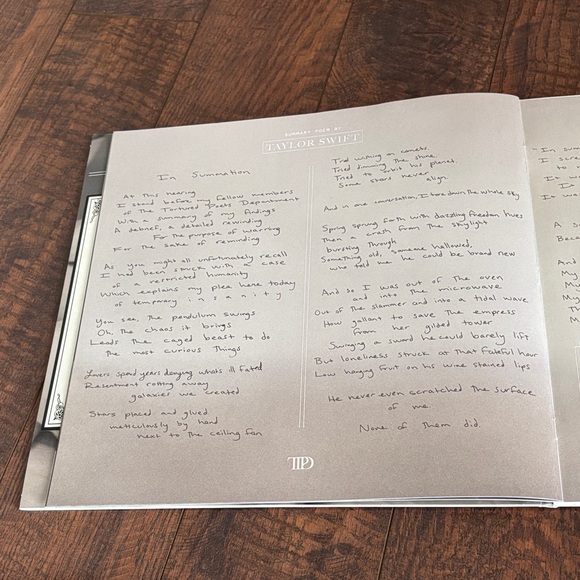 SUMMARY POEM BY
TAYLOR SWIFT
In Summation
At this hearing
I stand before my fellow members
of the Tortured Poets Department
With a summary of my findings
A debrief, a detailed rewinding
For the purpose of warning
For the sake of reminding
As you might all unfortunately recall
I had been struck with a case
of a restricted humanity
Which explains my plea here today
of temporary i n s a n i t y
You see, the pendulum swings
Oh, the chaos it brings
Leads the caged beast to do
the most curious things
Lovers spend years denying what's ill fated
Resentment rotting away
galaxies we created
Stars placed and glued
meticulously by hand
next to the ceiling fan
Tried wishing on comets
Tried dimming the shine
Tried to orbit his planet
Some stars never align.
And in one conversation, I tore down the whole sky
Spring sprung forth with dazzling freedom hues
Then a crash from the skylight
bursting through
Something old, someone hallowed,
who told me he could be brand new
And so I was out of the oven
and into the microwave
Out of the slammer and into a tidal wave
How gallant to save the empress
from her gilded tower
Swinging a sword he could barely lift
But loneliness struck at that fateful hour
Low hanging fruit on his wine stained lips
He never even scratched the surface
of me.
None of them did.
TTPD